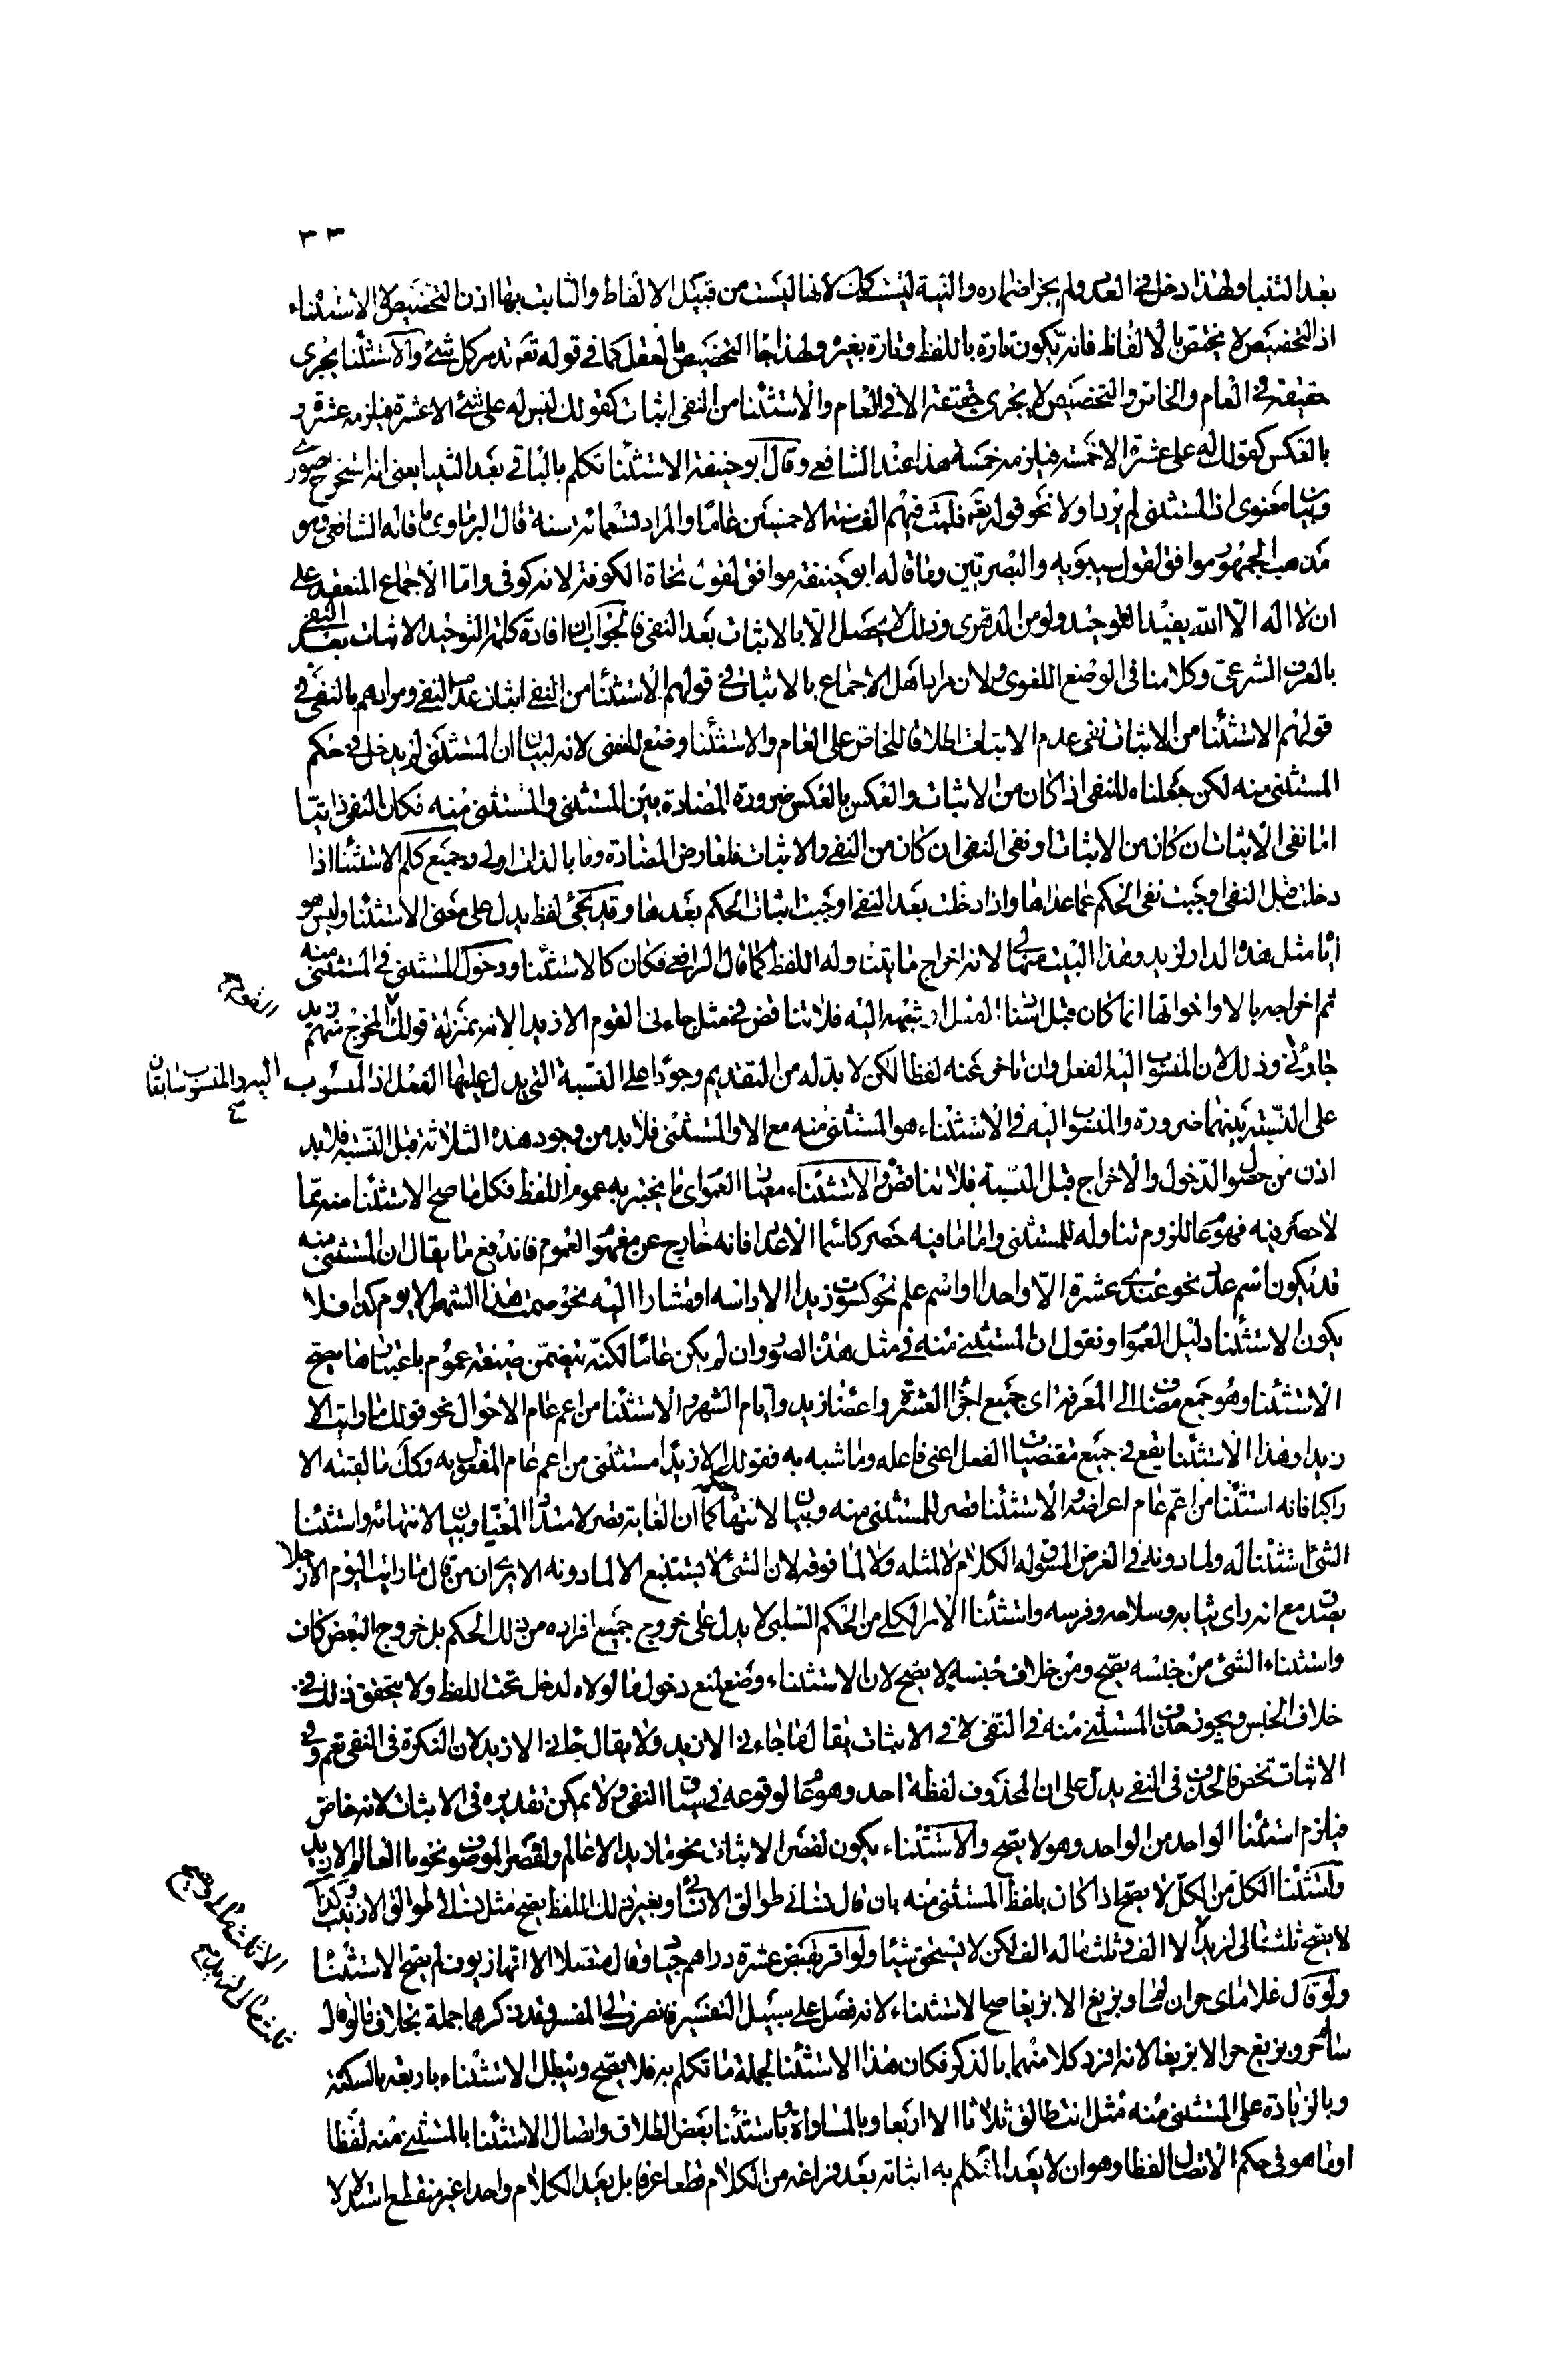 ٣٣
بعد الثنيا ولهذا دخل في العدد ولم يجز اضماره والنية ليست كذلك لانها ليست من قبيل الالفاظ والثابت بها اذن التخصيص لا الاستثناء
اذ التخصيص لا يختص بالالفاظ فانه يكون تارة باللفظ وتارة بغيره ولهذا جاء التخصيص بالعقل كما في قوله تعم تدمر كل شئ والاستثناء يجري
حقيقة في العام والخاص والتخصيص لا يجري حقيقة الا في العام والاستثناء من النفي اثبات كقولك ليس له علي شئ الا عشرة فيلزمه عشرة و
بالعكس كقولك له علي عشرة الا خمسة فيلزمه خمسة هذا عند الشافعي وقال ابو حنيفة الاستثناء تكلم بالباقي بعد الثنيا يعني انه استخراج صوري
وبيان معنوي اذ المستثنى لم يرد اولا نحو قوله تعم فلبث فيهم الف سنة الا خمسين عاما والمراد تسعمائة سنة قال البرماوي ما قاله الشافعي وهو
مذهب الجمهور موافق لقول سيبويه والبصريين وما قاله ابو حنيفة موافق لقول نحاة الكوفة لانه كوفي واما الاجماع المنعقد على
ان لا اله الا الله يفيد التوحيد ولو من الدهري وذلك لا يحصل الا بالاثبات بعد النفي فالجواب ان افادة كلمة التوحيد الاثبات بعد النفي
بالعرف الشرعي وكلامنا في الوضع اللغوي ولان مراد اهل الاجماع بالاثبات في قولهم الاستثناء من النفي اثبات عدم النفي ومرادهم بالنفي في
قولهم الاستثناء من الاثبات نفي عدم الاثبات اطلاقا للخاص على العام والاستثناء وضع للنفي لانه لبيان ان المستثنى لم يدخل في حكم
المستثنى منه لكن جعلناه للنفي اذا كان من الاثبات والعكس بالعكس ضرورة المضادة بين المستثنى والمستثنى منه فكان النفي ذاتيا
اما نفي الاثبات ان كان من الاثبات او نفي النفي ان كان من النفي والاثبات فلعارض المضادة وما بالذات اولى وجميع كلم الاستثناء اذا
دخلت قبل النفي اوجبت نفي الحكم عما عداها واذا دخلت بعد النفي اوجبت اثبات الحكم بعدها وقد يجئ لفظ يدل على معنى الاستثناء وليس هو
اياه مثل هذه الدار لزيد وهذا البيت منها لي لانه اخراج ما يتناوله اللفظ كما قال الرافعي فكان كالاستثناء ودخول المستثنى في المستثنى منه
ثم اخراجه بالا واخواتها انما كان قبل اسناد الفعل او شبهه اليه فلا تناقض في مثل جاءني القوم الا زيدا لانه بمنزلة قولك المخرج منهم زيد
جاؤني وذلك لان المنسوب اليه الفعل وان تاخر عنه لفظا لكن لا بد له من التقديم وجودا على النسبة التي يدل عليها الفعل اذ المنسوب
اليه والمنسوب سابقان صح
على النسبة بينهما ضرورة والمنسوب اليه في الاستثناء هو المستثنى منه مع الا والمستثنى فلا بد من وجود هذه الثلاثة قبل النسبة فلا بد
اذن من حصول الدخول والاخراج قبل النسبة فلا تناقض والاستثناء معيار العموم اي ما يختبر به عموم اللفظ فكل ما صح الاستثناء منه مما
لا حصر فيه فهو عام للزوم تناوله للمستثنى واما ما فيه حصر كاسماء الاعداد فانه خارج عن مفهوم العموم فاندفع ما يقال ان المستثنى منه
قد يكون اسم عدد نحو عندي عشرة الا واحدا او اسم علم نحو كسوت زيدا الا راسه او مشارا اليه نحو صمت هذا الشهر الا يوم كذا فلا
يكون الاستثناء دليل العموم او نقول ان المستثنى منه في مثل هذه الصور وان لم يكن عاما لكنه يتضمن صيغة عموم باعتبارها يصح
الاستثناء وهو جمع مضاف الى المعرفة اي جميع اجزاء العشرة واعضاء زيد وايام الشهر والاستثناء من اعم عام الاحوال نحو قولك ما رايت الا
زيدا وهذا الاستثناء يقع في جميع مقتضيات الفعل اعني فاعله وما شبه به فقولك الا زيدا مستثنى من اعم عام المفعول به وكذلك ما لقيته الا
راكبا فانه استثناء من اعم عام اعراضه والاستثناء قصر للمستثنى منه وبيان لانتهاء حكمه كما ان الغاية قصر لامتداد المغيا وبيان لانتهائه واستثناء
الشئ استثناء له ولما دونه في الغرض المسوق له الكلام لا لمثله ولا لما فوقه لان الشئ لا يستتبع الا لما دونه الا يرى ان من قال ما رايت اليوم الا رجلا
يصدق مع انه راى ثيابه وسلاحه وفرسه واستثناء الامر الكلي من الحكم السلبي لا يدل على خروج جميع افراده من ذلك الحكم بل خروج البعض كاف
واستثناء الشئ من جنسه يصح ومن خلاف جنسه لا يصح لان الاستثناء وضع لمنع دخول ما لولاه لدخل تحت اللفظ ولا يتحقق ذلك في
خلاف الجنس ويجوز حذف المستثنى منه في النفي لا في الاثبات يقال ما جاءني الا زيد ولا يقال جاءني الا زيد لان النكرة في النفي تعم وفي
الاثبات تخص فالحذف في النفي يدل على ان المحذوف لفظة احد وهو عام لوقوعه في سياق النفي ولا يمكن تقديره في الاثبات لانه خاص
فيلزم استثناء الواحد من الواحد وهو لا يصح والاستثناء يكون لقصر الاثبات نحو ما زيد الا عالم ولقصر الموصوف نحو ما العالم الا زيد
واستثناء الكل من الكل لا يصح اذا كان بلفظ المستثنى منه بان قال نسائي طوالق الا نسائي وبغير ذلك اللفظ يصح مثل نسائي طوالق الا زينب وكذا
لا يصح ثلث مالي لزيد الا الفا وثلث ماله الف لكن لا يستحق شيئا ولو اقر بقبض عشرة دراهم جياد وقال متصلا الا انها زيوف لم يصح الاستثناء
ولو قال غلاماي حران سالم وبزيغ الا بزيغا صح الاستثناء لانه فصل على سبيل التفسير فانصرف الى المفسر وقد ذكرهما جملة بخلاف ما لو قال
سالم حر وبزيغ حر الا بزيغا لانه افرد كلا منهما بالذكر فكان هذا الاستثناء لجملة ما تكلم به فلا يصح ويبطل الاستثناء باربعة بالسكتة
وبالزيادة على المستثنى منه مثل انت طالق ثلاثا الا اربعا وبالمساواة وباستثناء بعض الطلاق واتصال الاستثناء بالمستثنى منه لفظا
او ما هو في حكم الاتصال لفظا وهو ان لا يعد المتكلم به اتيانه بعد فراغه من الكلام قطعا عرفا بل يعد الكلام واحدا غير منقطع